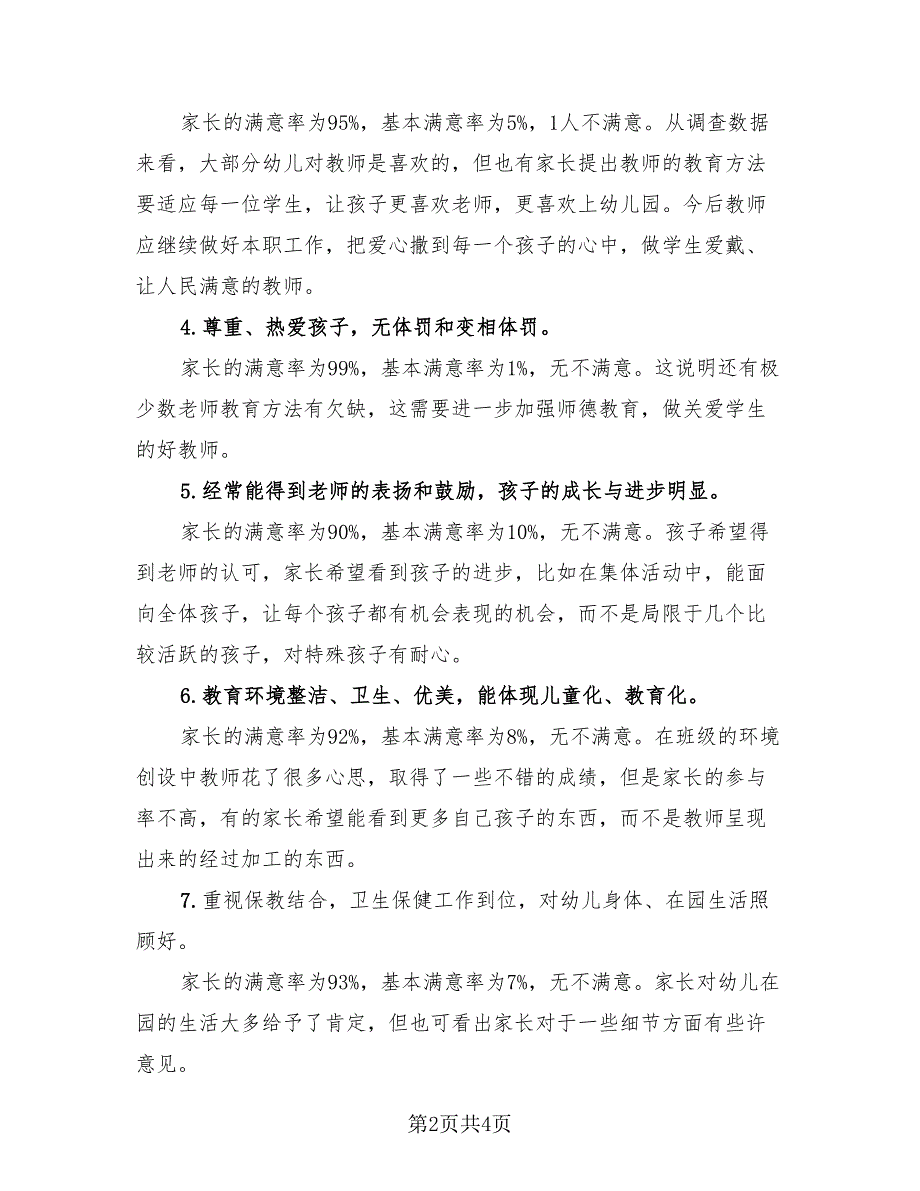 家长的满意率为95%，基本满意率为5%，1人不满意。从调查数据
来看，大部分幼儿对教师是喜欢的，但也有家长提出教师的教育方法
要适应每一位学生，让孩子更喜欢老师，更喜欢上幼儿园。今后教师
应继续做好本职工作，把爱心撒到每一个孩子的心中，做学生爱戴、
让人民满意的教师。
4.尊重、热爱孩子，无体罚和变相体罚。
家长的满意率为99%，基本满意率为1%，无不满意。这说明还有极
少数老师教育方法有欠缺，这需要进一步加强师德教育，做关爱学生
的好教师。
5.经常能得到老师的表扬和鼓励，孩子的成长与进步明显。
家长的满意率为90%，基本满意率为10%，无不满意。孩子希望得
到老师的认可，家长希望看到孩子的进步，比如在集体活动中，能面
向全体孩子，让每个孩子都有机会表现的机会，而不是局限于几个比
较活跃的孩子，对特殊孩子有耐心。
6.教育环境整洁、卫生、优美，能体现儿童化、教育化。
家长的满意率为92%，基本满意率为8%，无不满意。在班级的环境
创设中教师花了很多心思，取得了一些不错的成绩，但是家长的参与
率不高，有的家长希望能看到更多自己孩子的东西，而不是教师呈现
出来的经过加工的东西。
7.重视保教结合，卫生保健工作到位，对幼儿身体、在园生活照
顾好。
家长的满意率为93%，基本满意率为7%，无不满意。家长对幼儿在
园的生活大多给予了肯定，但也可看出家长对于一些细节方面有些许
意见。
第2页共4页